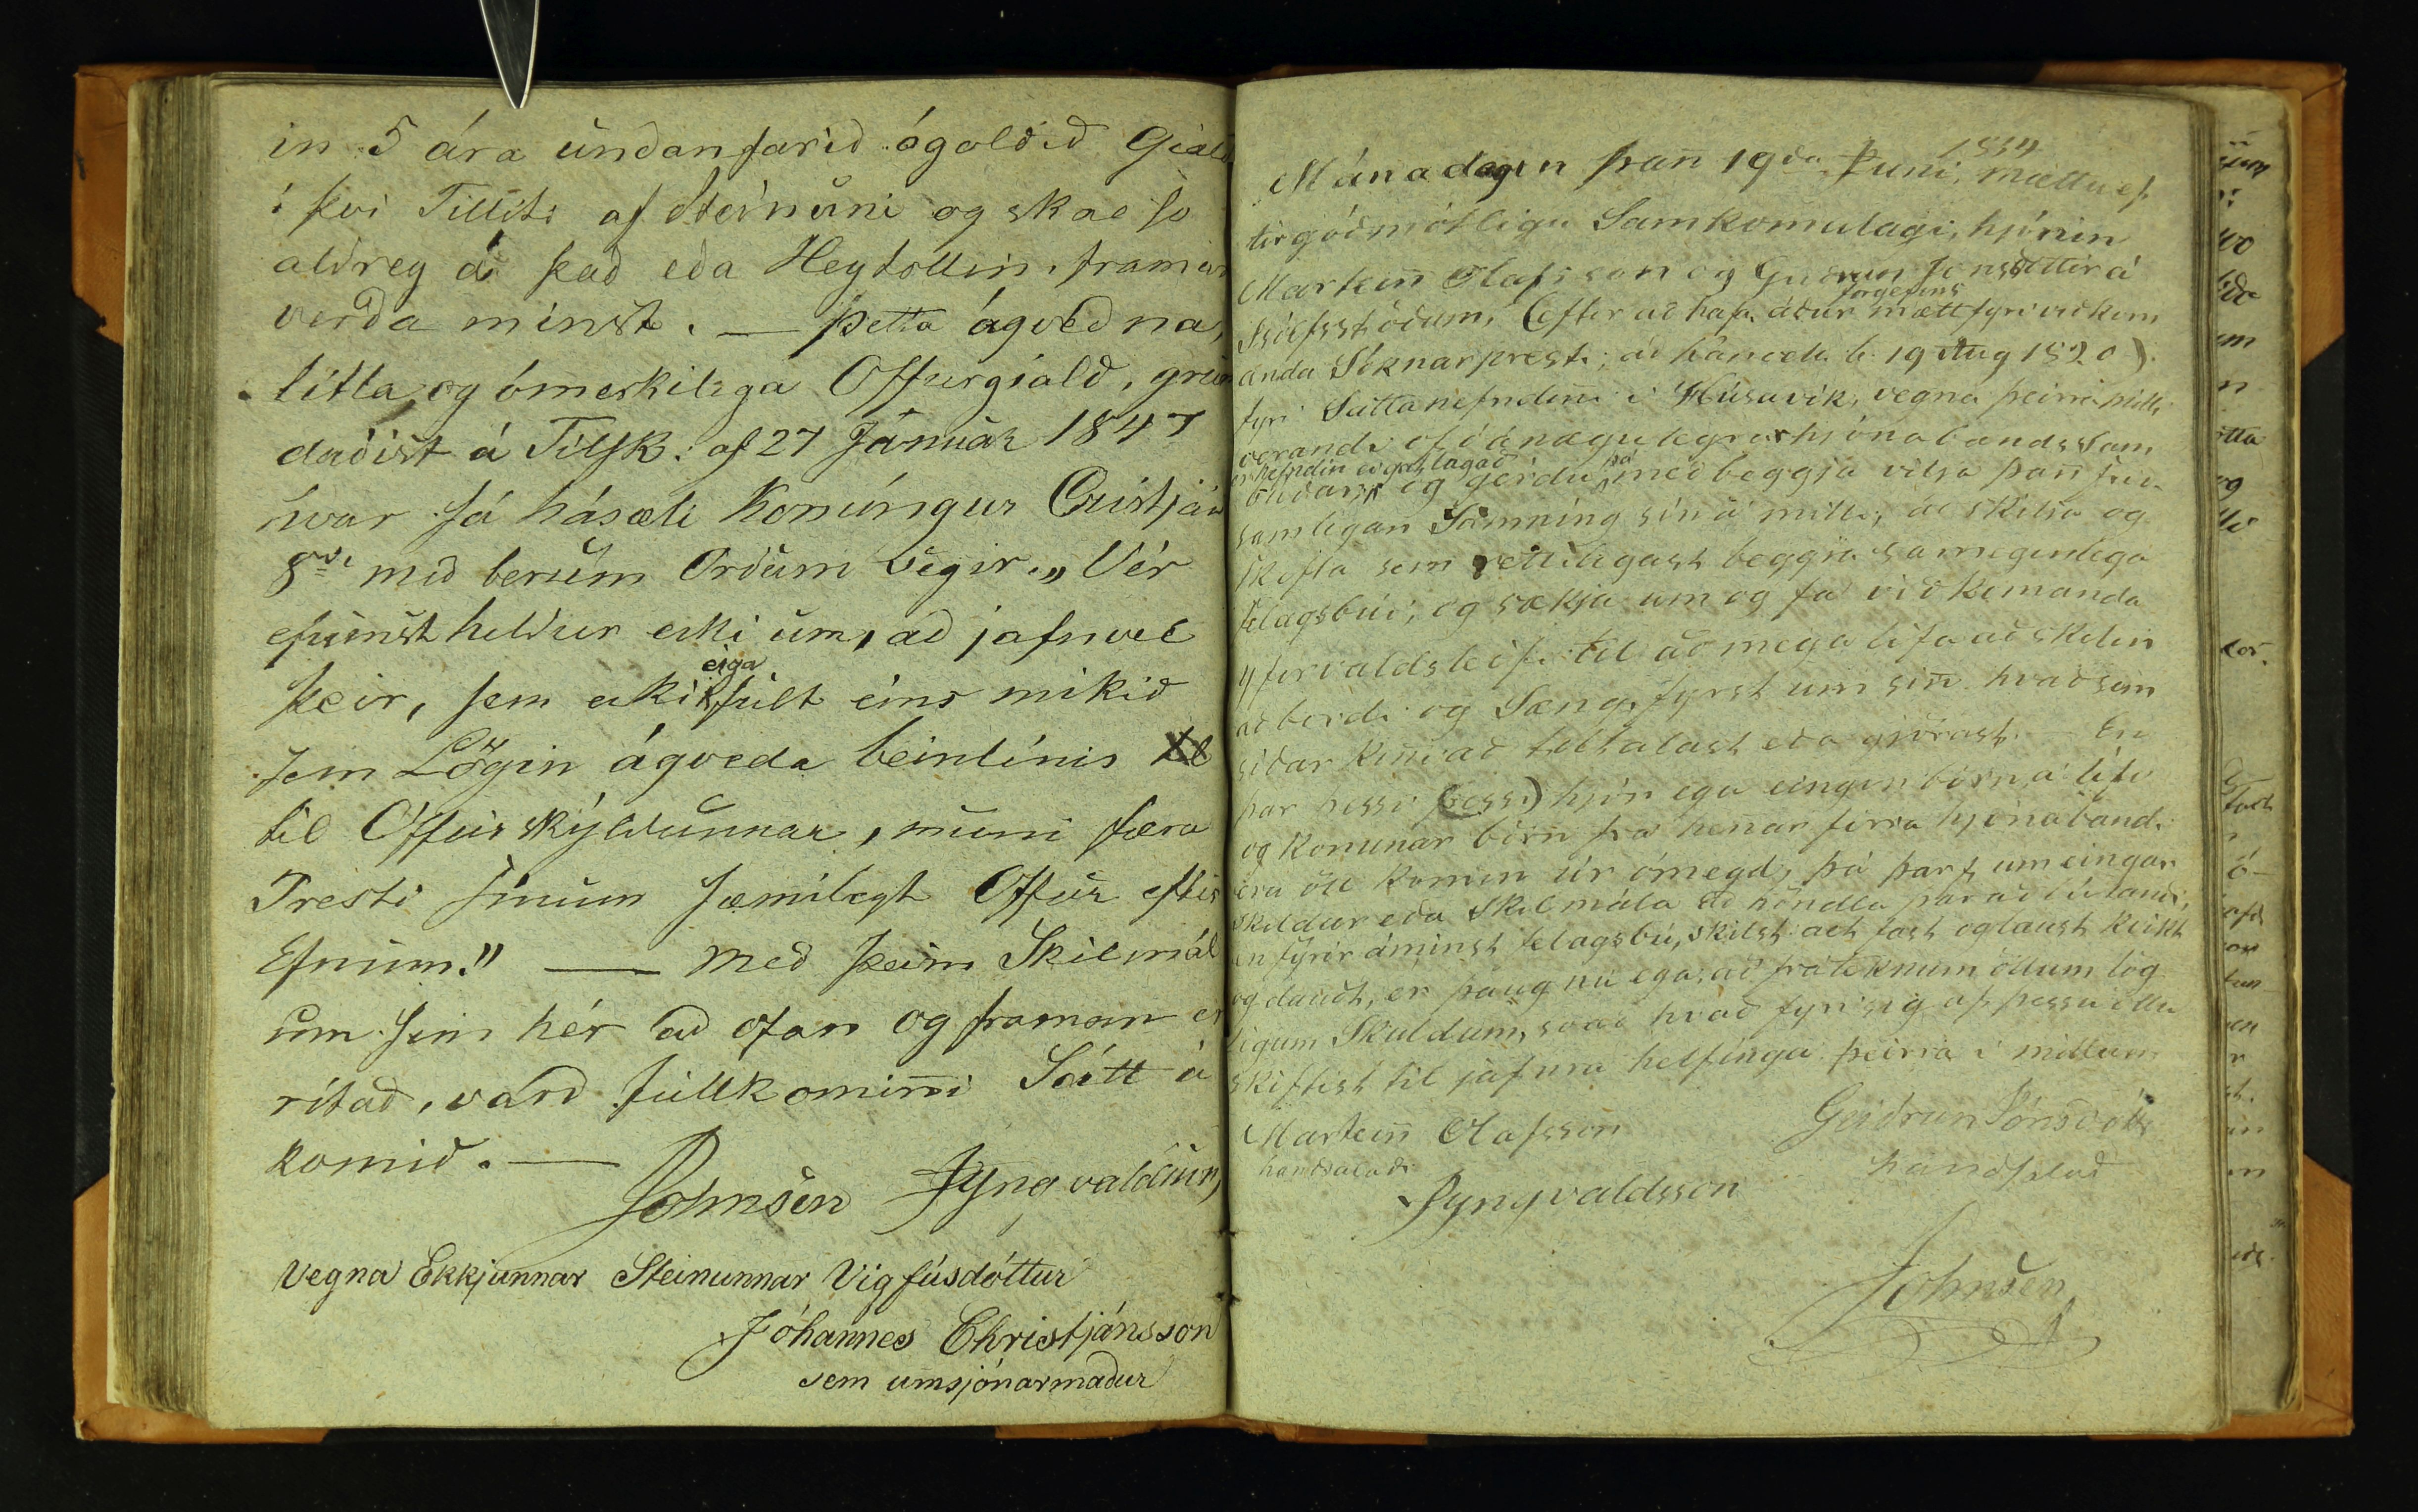 in 5 ára undanfarið ógoldið Giald
i þvi Tilliti af Steinunni og skal so
aldreg á það eða Heytollin framar
verða minst. — þetta ágveðna,
litla og ómerkilega Offurgiald, grun
daðist á Tilsk: af 27 Januar 1847
hvar sá hásæli Konúngur Cristján
8di með berum Orðum segir. „Vér
efumst heldur ecki um, að jafnvel
þeir, sem ecki eiga fult eins mikið
sem Lögin ágveða beinlínis
til Offurskyldunnar, muni færa
Presti sínum sæmilegt Offur eftir
Efnum." — Með þeim Skilmál
um sem hér að ofan og framan er
ritað, varð fullkominni Sátt á
komið. —
Johnsen JYngvaldsson,
Vegna Ekkjunnar Steinunnar Vigfúsdóttur
Jóhannes Christjánsson
sem umsjónarmaður
Mánadagin þann 19da Juni, 1834 mættu ef
tir góðmótligu Samkomulagi, hjónin
Marteinn Olafsson og Guðrun Jonsdottir á
(Eftir að hafa áður forgefins mætt fyri viðkom
anda Sóknarpresti; 19 Aug 1820).
fyri Sáttanefndinni i Húsavik, vegna þeirra milli
verandi ofóánægulegrar hjónabandssam
búðar, og gerdu þá með beggja vilja þann frið
samligan Samning sín á milli, að skilja og
skifta sem rettiligast beggja sameginlega
felagsbúi; og sækja um og fá viðkomanda
yfirvaldsleifi til að mega lifa aðskilin
að bordi og Sæng, fyrst um sinn hvað sem
siðar kinni að tiltalast eða giörast. En
þar þessi (þessi) hjón ega eingin börn á lífi
og konunar börn frá hennar firra hjónabandi
eru öll komin úr ómegd, þá þarf um eingar
skildur eða skilmála að höndla þar að lútandi,
en fyrir áminst felagsbú, skilst alt fast og laust kvikt
og dautt, er þaug nú ega, að frateknum öllum lög
ligum Skuldum, so að hvað fyri sig af þessu öllu
skiftist til jafnra helfinga þeirra i millum
Marteinn Olafsson Guðrun Jónsdótt
handsalaði handsalað
JYngvaldsson
Johnsen